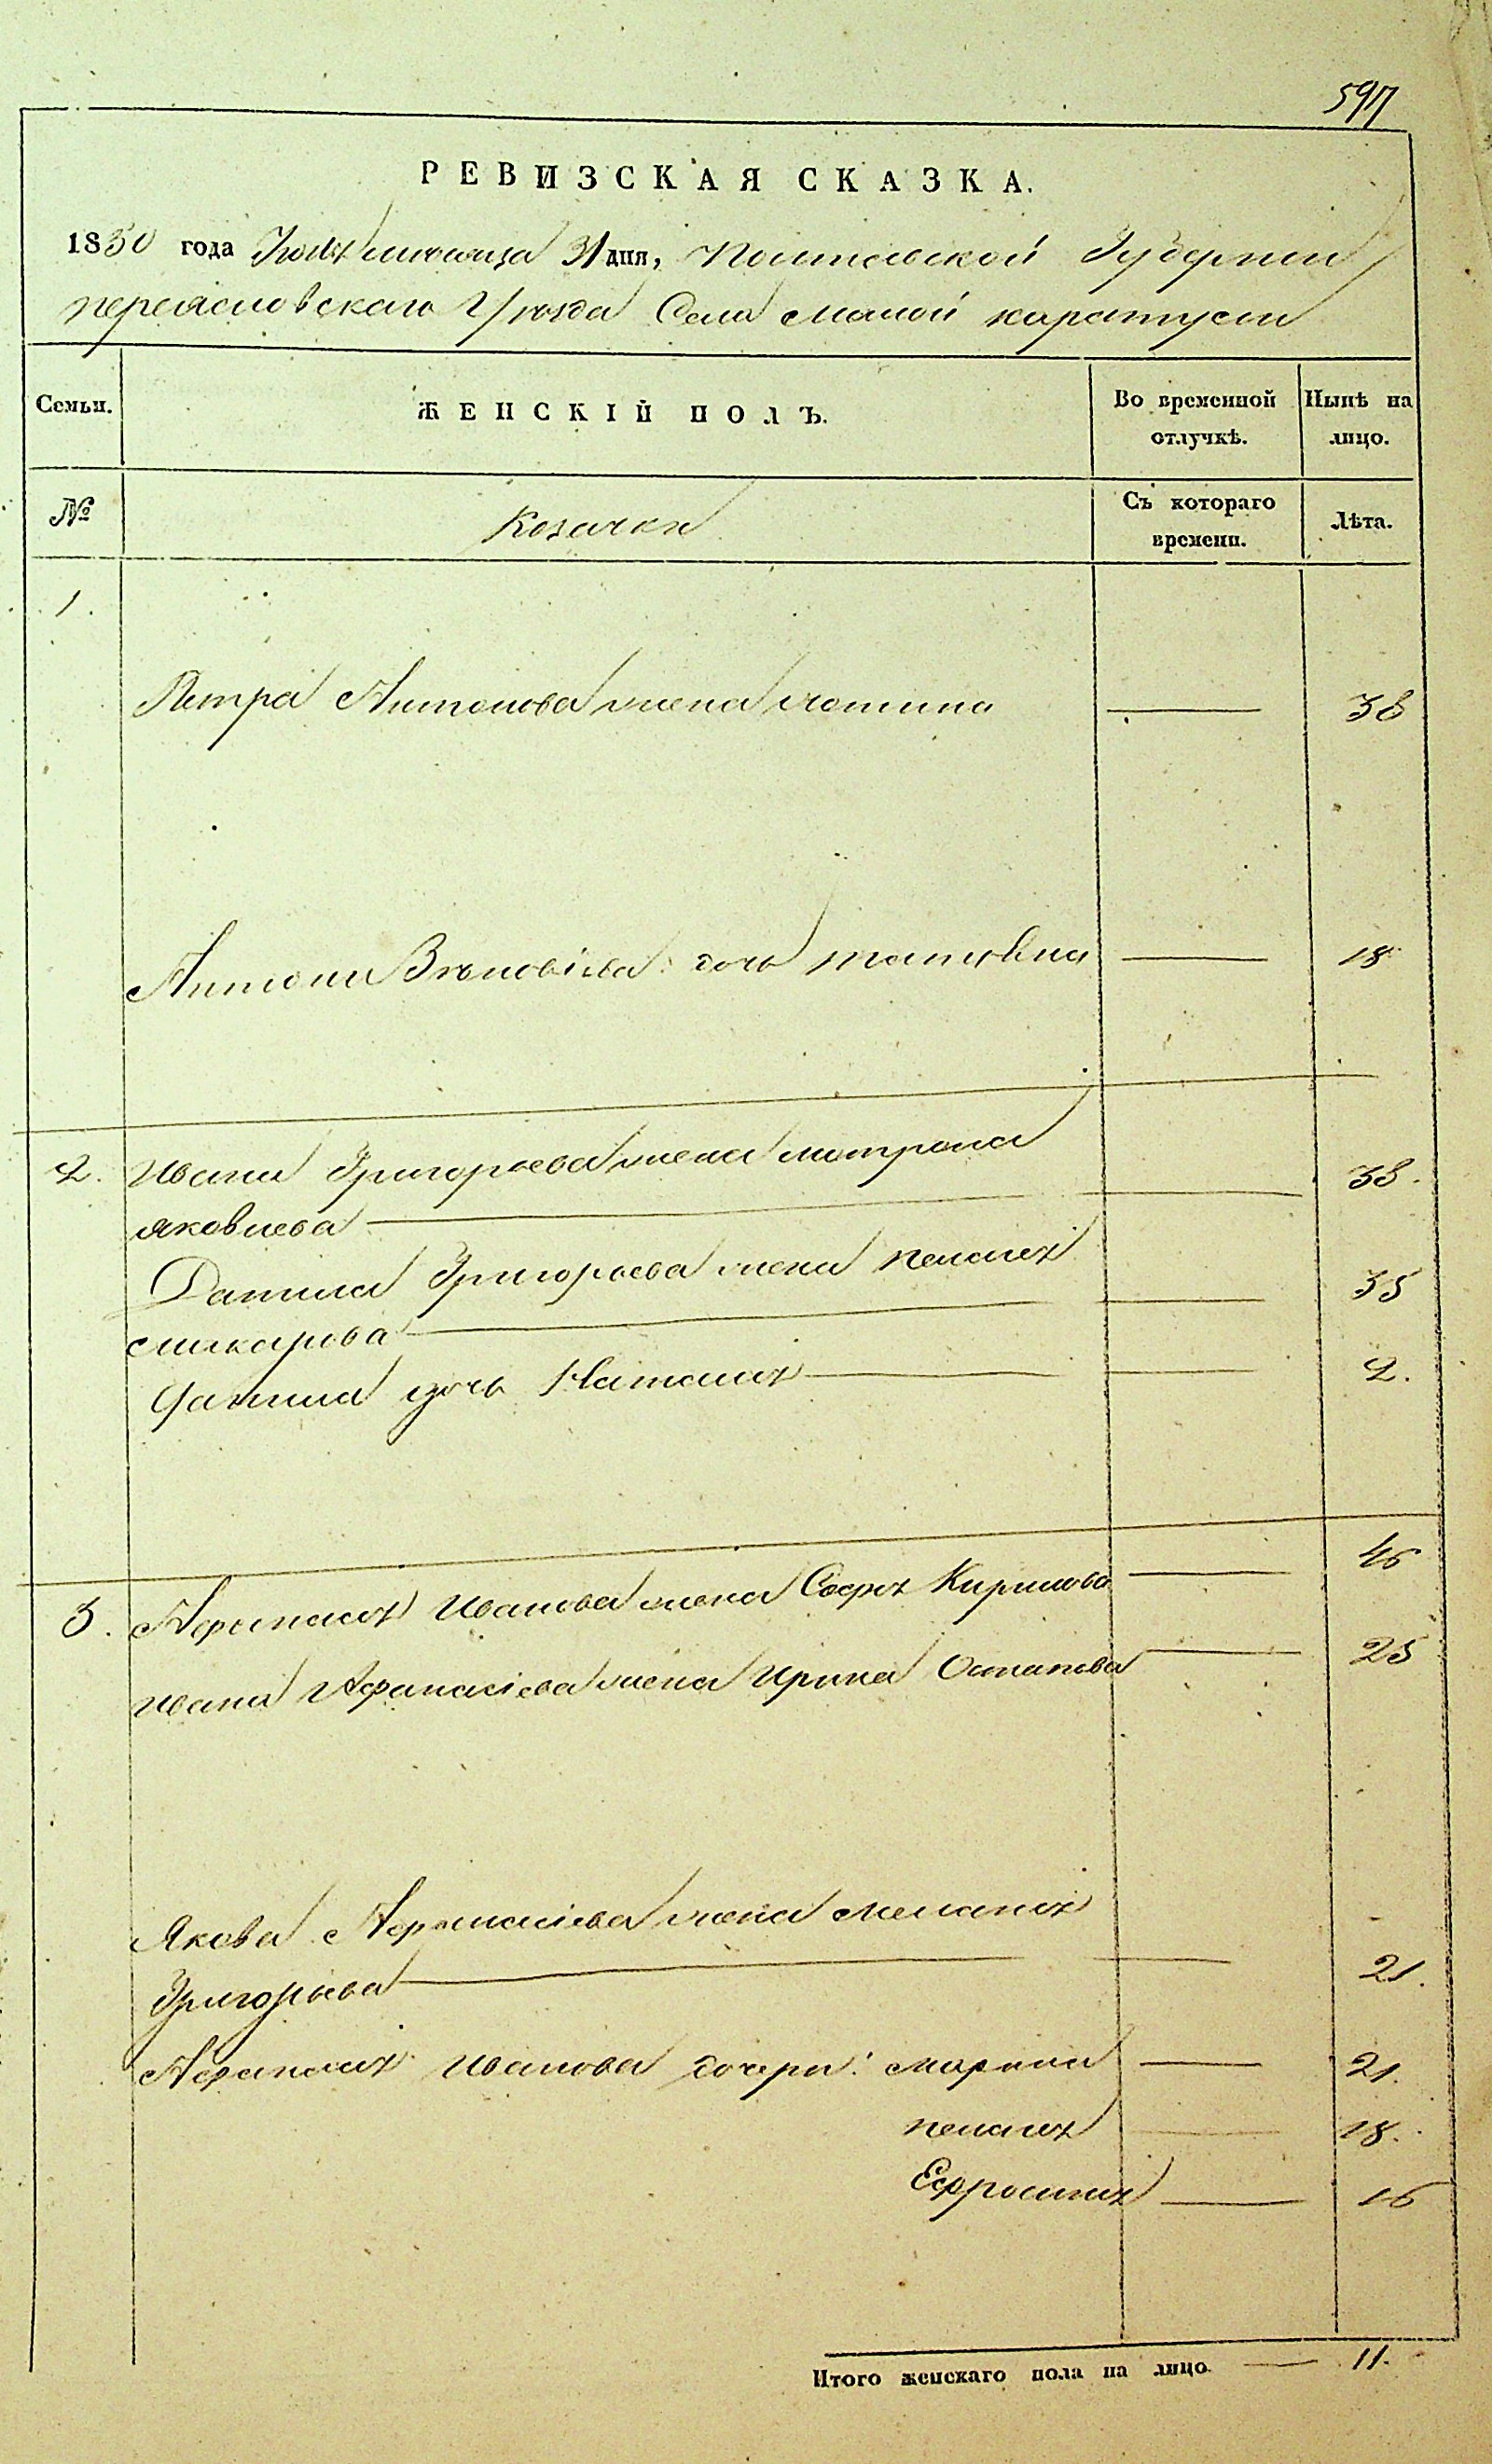 597
РЕВИЗСКАЯ СКАЗКА.
1850 года Июля месяца 31 дня, Полтавской Губернии
переясловскаго Уезда Села малой каратули
Семьи.
ЖЕНСКІЙ ПОЛЪ.
Во временной отлучкѣ.
Нынѣ на лицо.
№
Козачки
Съ котораго времени.
Лѣта.
1.
Петра Антонова жена 38
Антона Зѣновіева: дочь татіяна 18
2. Ивана Григорьева жена матрона
яковлева 38.
Данила Григорьева жена пелагея
макарова 35
Данила дочь Наталия 2.
3. Афанасия Иванова жена София Кирилова 46
Ивана Афанасіева жена Ирина Остапова 25
Якова Афанасіева жена Мелания
Григорьева 21.
Афанасия Иванова дочери: марина 21.
пелагея 18.
Ефросиния 16
Итого женскаго пола на лицо. 11.